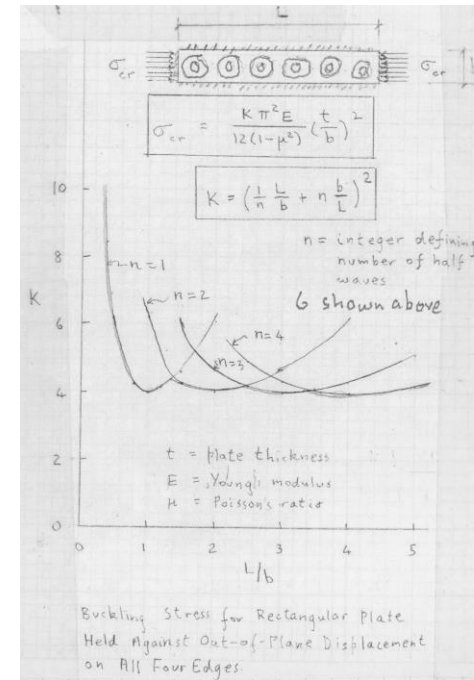 L
σcr
σcr
σcr = Kπ²E / 12(1-μ²) (t/b)²
K = (1/n L/b + n b/L)²
n = integer defining
number of half
waves
6 shown above
10
8
K
6
4
2
0
n=1
n=2
n=3
n=4
t = plate thickness
E = Young's modulus
μ = Poisson's ratio
0 1 2 3 4 5
L/b
Buckling Stress for Rectangular Plate
Held Against Out-of-Plane Displacement
on All Four Edges.